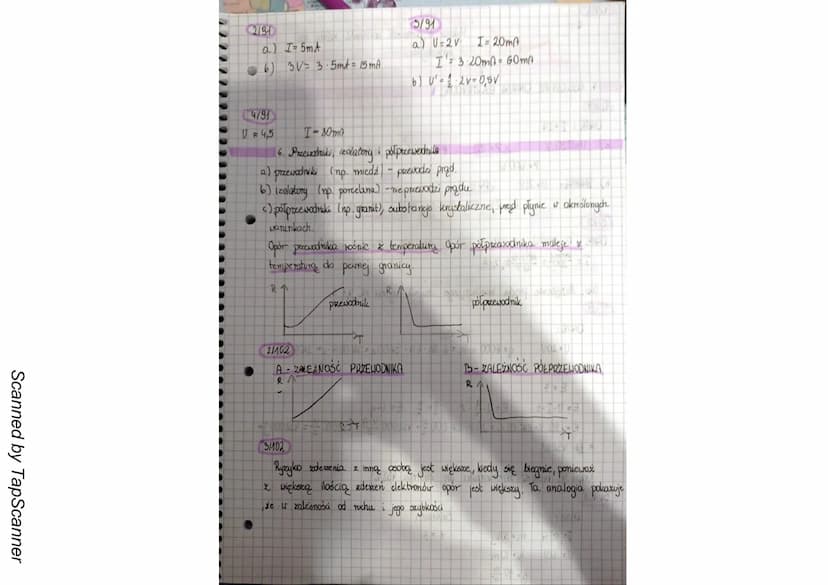 2/91
a) I = 5mA
b) 3V = 3 · 5mA = 15mA
3/91
a) U = 2V I = 20mA
I' = 3 · 20mA = 60mA
b) U' = · 2V = 0,5V
4/91
U = 4,5 I = 80mA
6. Przewodniki, izolatory i półprzewodniki
a) przewodniki (np. miedź) - przewodzi prąd.
b) izolatory (np. porcelana) - nie przewodzi prądu
c) półprzewodniki (np. granit), substancje krystaliczne, prąd płynie w określonych
warunkach.
Opór przewodnika rośnie z temperaturą. Opór półprzewodnika maleje z
temperaturą do pewnej granicy
R przewodnik T
R półprzewodnik
/102
A - ZALEŻNOŚĆ PRZEWODNIKA
R T
B - ZALEŻNOŚĆ PÓŁPRZEWODNIKA
R T
3/102
Ryzyko zderzenia z inną osobą jest większe, kiedy się biegnie, ponieważ
z większą ilością zderzeń elektronów opór jest większy. Ta analogia pokazuje
,że w zależności od ruchu i jego szybkości
Scanned by TapScanner